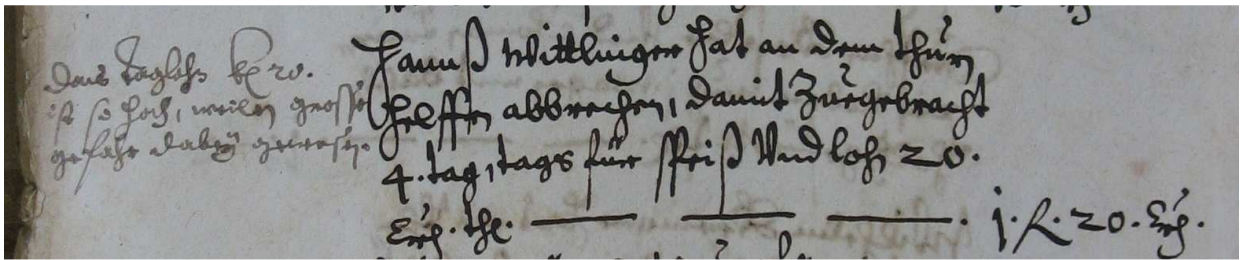 das taglohn kr 20.
ist so hoch, weilen grosse
gefahr dabey gewesen.
Hannß Wittlinger hat an dem thurn
helffen abbrechen, damit Zuegebracht
4. tag, tags für speiß Vnd lohn 20.
Crz. tht. 1. fl. 20. Crz.